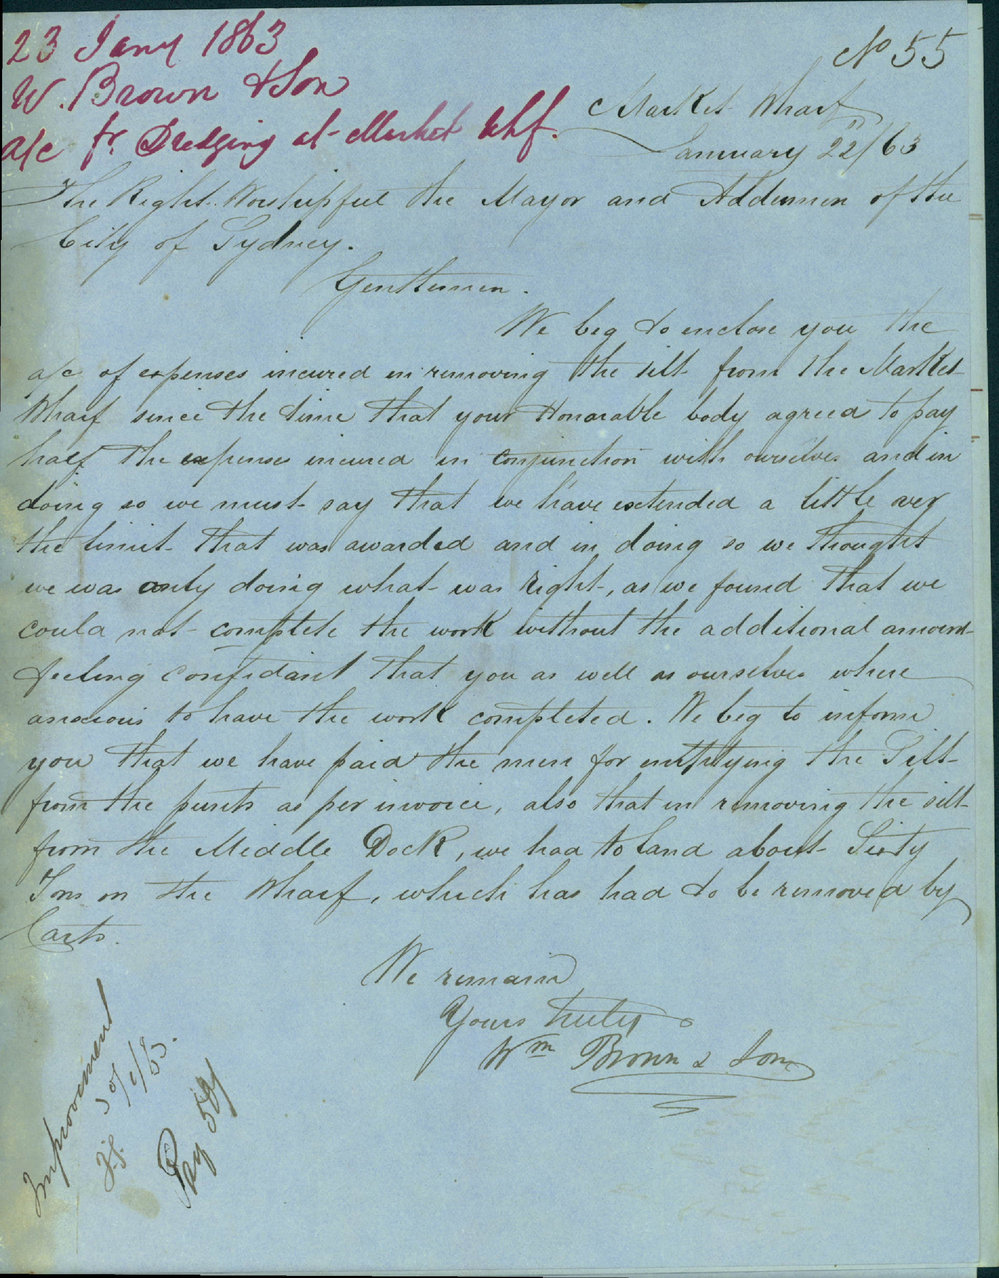 23 Jany 1863
W. Brown & Son
a/c fr Dredging at Market Whf.
No 55
Market Wharf
January 22nd/63
The Right Worshipful the Mayor and Aldermen of the
City of Sydney.
Gentlemen.
We beg to enclose you the
a/c of expenses incured in removing the silt from the Market
Wharf since the time that your Honorable body agreed to pay
half the expense incured in conjunction with ourselves and in
doing so we must say that we have extended a little over
the limit that was awarded and in doing so we thought
we was only doing what was right, as we found that we
could not complete the work without the additional amount
feeling confidant that you as well as ourselves where
anxious to have the work completed. We beg to inform
you that we have paid the men for emptying the Silt
from the punts as per invoice, also that in removing the silt
from the Middle Dock, we had to land about Sixty
Tons on the Wharf, which has had to be removed by
Carts.
We remain
Yours truly
Wm Brown & Son
Improvement
30/1/63.
Pay